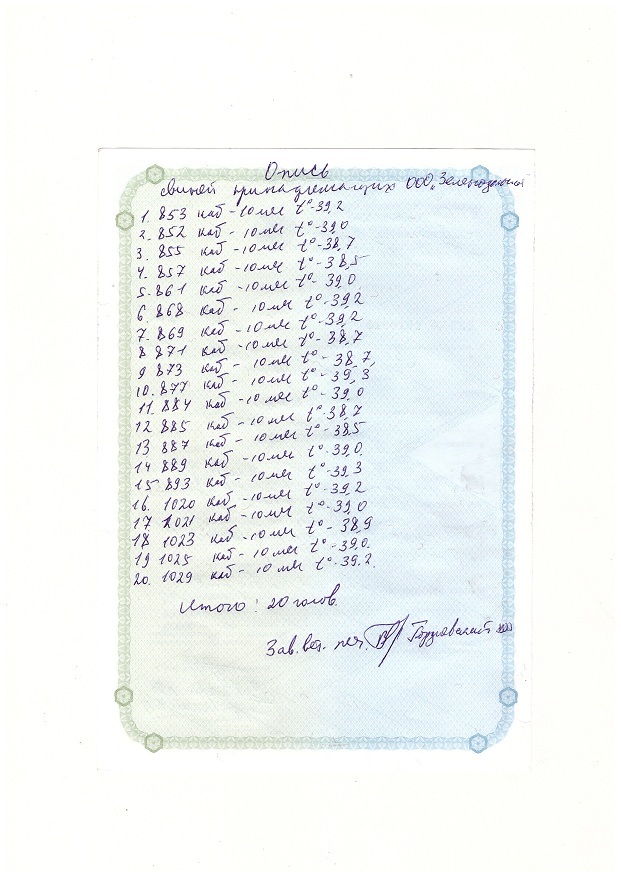 Опись
свиней принадлежащих ООО „Зеленодольск
1. 853 каб - 10 мес t°-39,2
2. 852 каб - 10 мес t°-39,0
3. 855 каб - 10 мес t°-38,7
4. 857 каб - 10 мес t°-38,5
5. 861 каб - 10 мес t°- 39,0
6. 868 каб - 10 мес t°-39,2
7. 869 каб - 10 мес t°-39,2
8 871 каб - 10 мес t°- 38,7
9 873 каб - 10 мес t°- 38,7
10. 877 каб - 10 мес t°- 39,3
11. 884 каб - 10 мес t°- 39,0
12 885 каб - 10 мес t°-38,7
13 887 каб - 10 мес t°-38,5
14 889 каб - 10 мес t°-39,0
15 893 каб - 10 мес t°-39,3
16. 1020 каб - 10 мес t°-39,2
17. 1021 каб - 10 мес t°-39,0
18 1023 каб - 10 мес t°- 38,9
19 1025 каб - 10 мес t°-39,0
20. 1029 каб - 10 мес t°-39,2
Итого: 20 голов.
Зав. вет. леч.